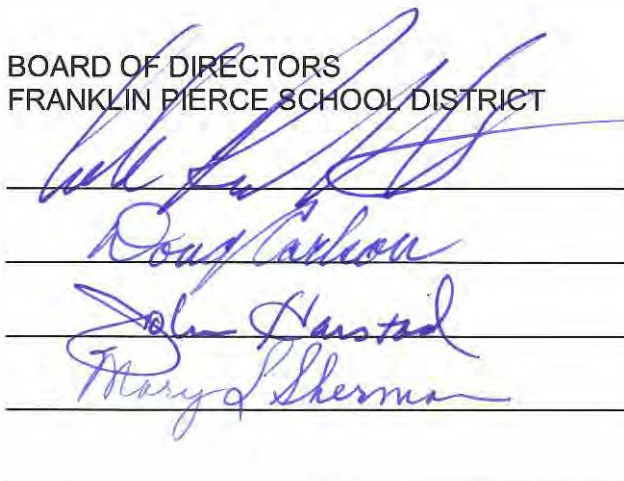 BOARD OF DIRECTORS
FRANKLIN PIERCE SCHOOL DISTRICT
Doug Carlson
John Harstad
Mary L Sherman